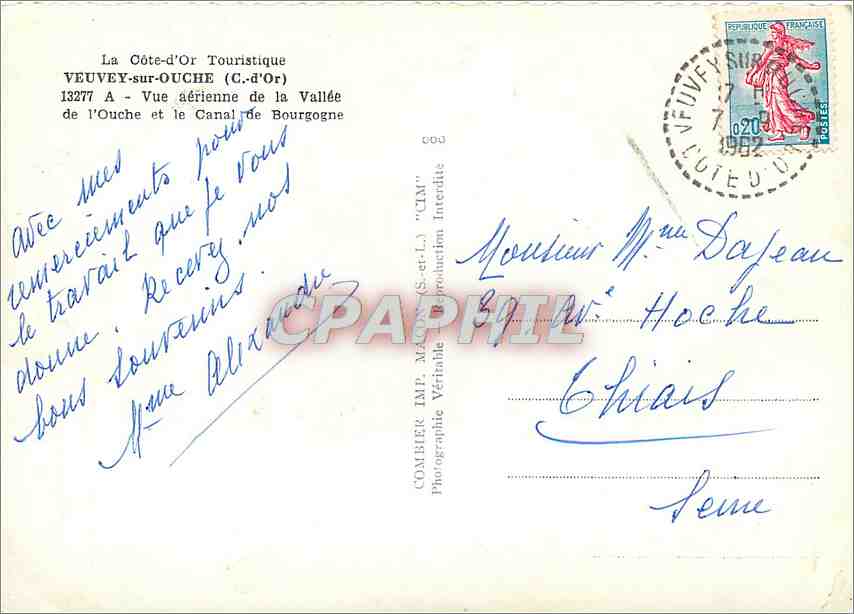 La Côte-d'Or Touristique
VEUVEY-sur-OUCHE (C.-d'Or)
13277 A - Vue aérienne de la Vallée
de l'Ouche et le Canal de Bourgogne
avec mes
remerciements pour
le travail que je vous
donne. Recevez nos
bons souvenirs.
Mme Alexandre
COMBIER IMP. MACON (S.-et-L.) "CIM"
Photographie Véritable Reproduction Interdite
CPAPHIL
REPUBLIQUE FRANÇAISE
0,20
POSTES
VEUVEY SUR
7 H
7 - 9
1962
COTE D'OR
Monsieur Mme Dajeau
39, Ave Hoche
Thiais
Seine